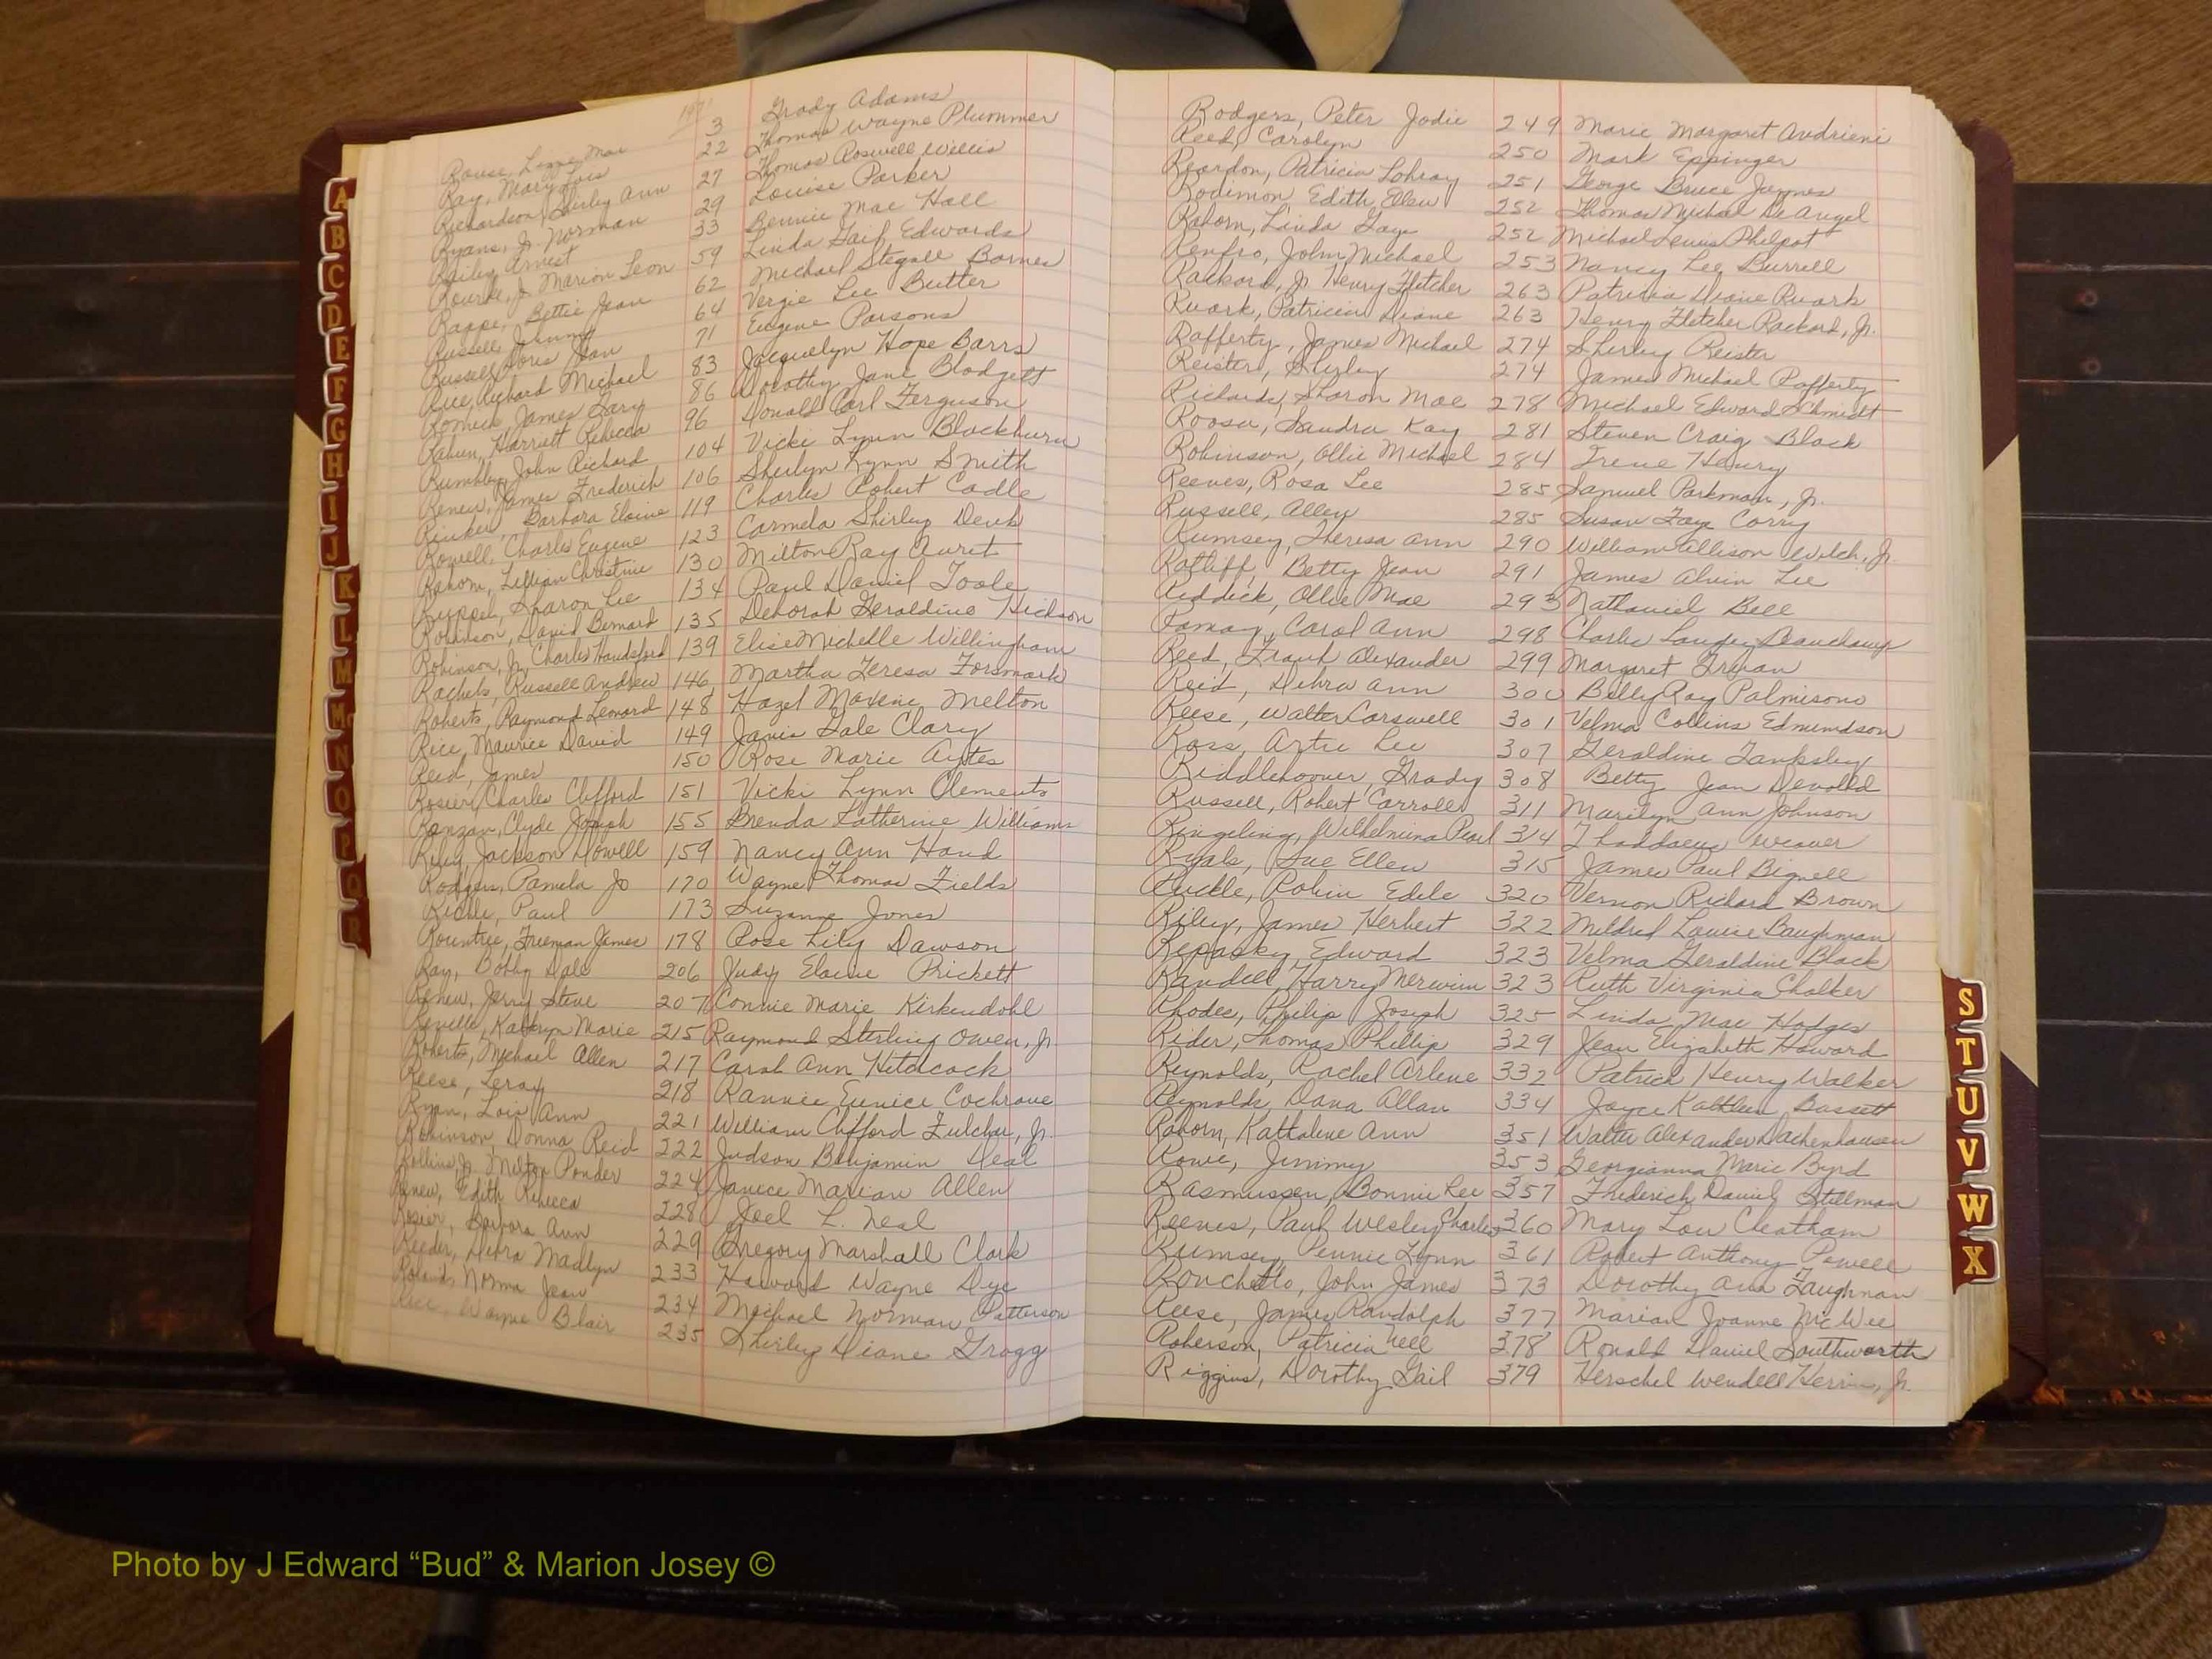 197
Rouse, Lizzie Mae 3 Grady Adams
Ray, Mary Lois 22 Thomas Wayne Plummer
Richardson, Shirley Ann 27 Thomas Roswell Willis
Ryans, Jr. Norman 29 Louise Parker
Railey, Arnest 33 Bennie Mae Hall
Rourke, Jr. Marion Leon 59 Linda Gail Edwards
Rappe, Bettie Jean 62 Michael Stegall Barnes
Russell, Jimmy 64 Vergie Lee Butter
Russell, Doris Jean 71 Eugene Parsons
Rice, Richard Michael 83 Jacquelyn Hope Barrs
James Gary 86 Dorothy Jane Blodgett
Rahun, Harriett Rebecca 96 Donald Carl Ferguson
Rumbley, John Richard 104 Vicki Lynn Blackburn
Renew, James Frederick 106 Sherlyn Lynn Smith
Rinker, Barbara Elaine 119 Charles Robert Cadle
Rowell, Charles Eugene 123 Carmela Shirley Denk
Rahorn, Lillian Christine 130 Milton Ray Auret
Sharon Lee 134 Paul Daniel Toole
Robinson, David Bernard 135 Deborah Geraldine Hickson
Robinson, Jr. Charles Handsford 139 Elise Michelle Willingham
Rachels, Russell Andrew 146 Martha Teresa Forsmark
Roberts, Raymond Leonard 148 Hazel Maxine Melton
Rice, Maurice David 149 Janis Gale Clary
Reid, James 150 Rose Marie Aytes
Rosier, Charles Clifford 151 Vicki Lynn Clements
Ranzan, Clyde Joseph 155 Brenda Catherine Williams
Riley, Jackson Howell 159 Nancy Ann Hand
Rodgers, Pamela Jo 170 Wayne Thomas Fields
Riddle, Paul 173 Suzanne Jones
Rountree, Freeman James 178 Rose Lily Dawson
Ray, Bobby Dale 206 Judy Elaine Prickett
Renew, Jerry Steve 207 Connie Marie Kirkendohl
Reville, Kathryn Marie 215 Raymond Sterling Owen, Jr.
Roberts, Michael Allen 217 Carol Ann Hitchcock
Reese, Leroy 218 Rannie Eunice Cochrane
Ryan, Lois Ann 221 William Clifford Fulcher, Jr.
Robinson, Donna Reid 222 Judson Benjamin Deal
Rollins, Jr. Milton Ponder 224 Janice Marian Allen
Renew, Edith Rebecca 228 Joel L. Neal
Rosier, Barbara Ann 229 Gregory Marshall Clark
Reeder, Debra Madlyn 233 Howard Wayne Dye
Rolands, Norma Jean 234 Michael Norman Patterson
Rice, Wayne Blair 235 Shirley Diane Gragg
Rodgers, Peter Jodie 249 Marie Margaret Andrieni
Reed, Carolyn 250 Mark Eppinger
Reardon, Patricia Lohray 251 George Bruce Jaynes
Rodimon Edith Ellen 252 Thomas Michael De Angel
Rahorn, Linda Gaye 252 Michael Lewis Philpot
Renfro, John Michael 253 Nancy Lee Burrell
Rackard, Jr Henry Fletcher 263 Patricia Diane Ruark
Ruark, Patricia Diane 263 Henry Fletcher Rackard, Jr.
Rafferty, James Michael 274 Shirley Reister
Reister, Shirley 274 James Michael Rafferty
Richards, Sharon Mae 278 Michael Edward Schmidt
Roosa, Sandra Kay 281 Steven Craig Black
Robinson, Ollie Michael 284 Irene Henry
Reeves, Rosa Lee 285 Samuel Parkman, Jr.
Russell, Allen 285 Susan Faye Corry
Rumsey, Theresa Ann 290 William Allison Welch, Jr.
Ratliff, Betty Jean 291 James Alvin Lee
Riddick, Ollie Mae 293 Nathaniel Bell
Carol Ann 298 Charles Beauchamp
Reed, Frank Alexander 299 Margaret
Reid, Debra Ann 300 Billy Ray Palmisono
Reese, Walter Carswell 301 Velma Collins Edmundson
Ross, Artie Lee 307 Geraldine Tanksley
Riddlehoover, Grady 308 Betty Jean Devold
Russell, Robert Carroll 311 Marilyn Ann Johnson
Ringeling, Wilhelmina Pearl 314 Thaddaeus Weaver
Ryals, Sue Ellen 315 James Paul Bignell
Ruckle, Robin Edele 320 Vernon Richard Brown
Riley, James Herbert 322 Mildred Louise Baughman
Repasky, Edward 323 Velma Geraldine Black
Randell, Harry Merwin 323 Ruth Virginia Chalker
Rhodes, Philip Joseph 325 Linda Mae Hodges
Rider, Thomas Phillip 329 Jean Elizabeth Howard
Reynolds, Rachel Arlene 332 Patrick Henry Walker
Reynolds, Dana Allan 334 Joyce Kathleen Bassett
Rahorn, Kattaline Ann 351 Walter Alexander Dachenhausen
Rowe, Jimmy 353 Georgianna Marie Byrd
Rasmussen, Bonnie Lee 357 Frederick Daniel Stillman
Reeves, Paul Wesley Charles 360 Mary Lou Cheatham
Rumsey, Pennie Lynn 361 Robert Anthony Powell
Ronchetto, John James 373 Dorothy Ann Laughman
Reese, James Randolph 377 Marian Joanne McWee
Roberson, Patricia Nell 378 Ronald Daniel Southworth
Riggins, Dorothy Gail 379 Herschel Wendell Herrin, Jr.
A
B
C
D
E
F
G
H
I
J
K
L
M
Mc
N
O
P
Q
R
S
T
U
V
W
X
Photo by J Edward “Bud” & Marion Josey ©